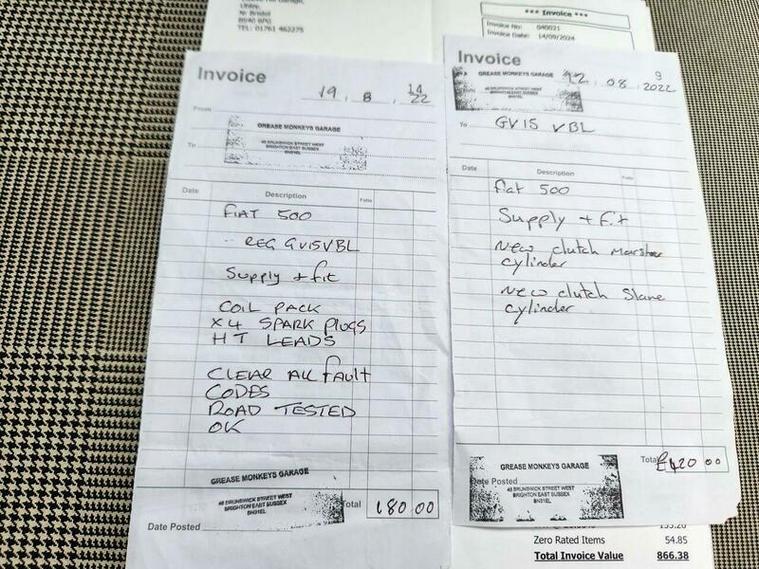 BS40 6PG
TEL: 01761 462275
*** Invoice ***
Invoice No: 040021
Invoice Date: 14/09/2024
Invoice
19 . 8 . 22
From
GREASE MONKEYS GARAGE
To
BRUNSWICK STREET WEST
BRIGHTON EAST SUSSEX
Date Description Folio
FIAT 500
REG GV15VBL
Supply + fit
COIL PACK
X4 SPARK PlugS
HT LEADS
CLEAR ALL fAult
CODES
ROAD TESTED
OK
GREASE MONKEYS GARAGE
BRUNSWICK STREET WEST
BRIGHTON EAST SUSSEX
BN31EL
Total 180 00
Date Posted
Invoice
GREASE MONKEYS GARAGE
08 2022
To GV15 VBL
Date Description Folio
fiat 500
Supply + fit
New clutch Marster
cylinder
New clutch Slave
cylinder
GREASE MONKEYS GARAGE
Total £420 00
Date Posted
BRUNSWICK STREET WEST
BRIGHTON EAST SUSSEX
BN31EL
Zero Rated Items 54.85
Total Invoice Value 866.38